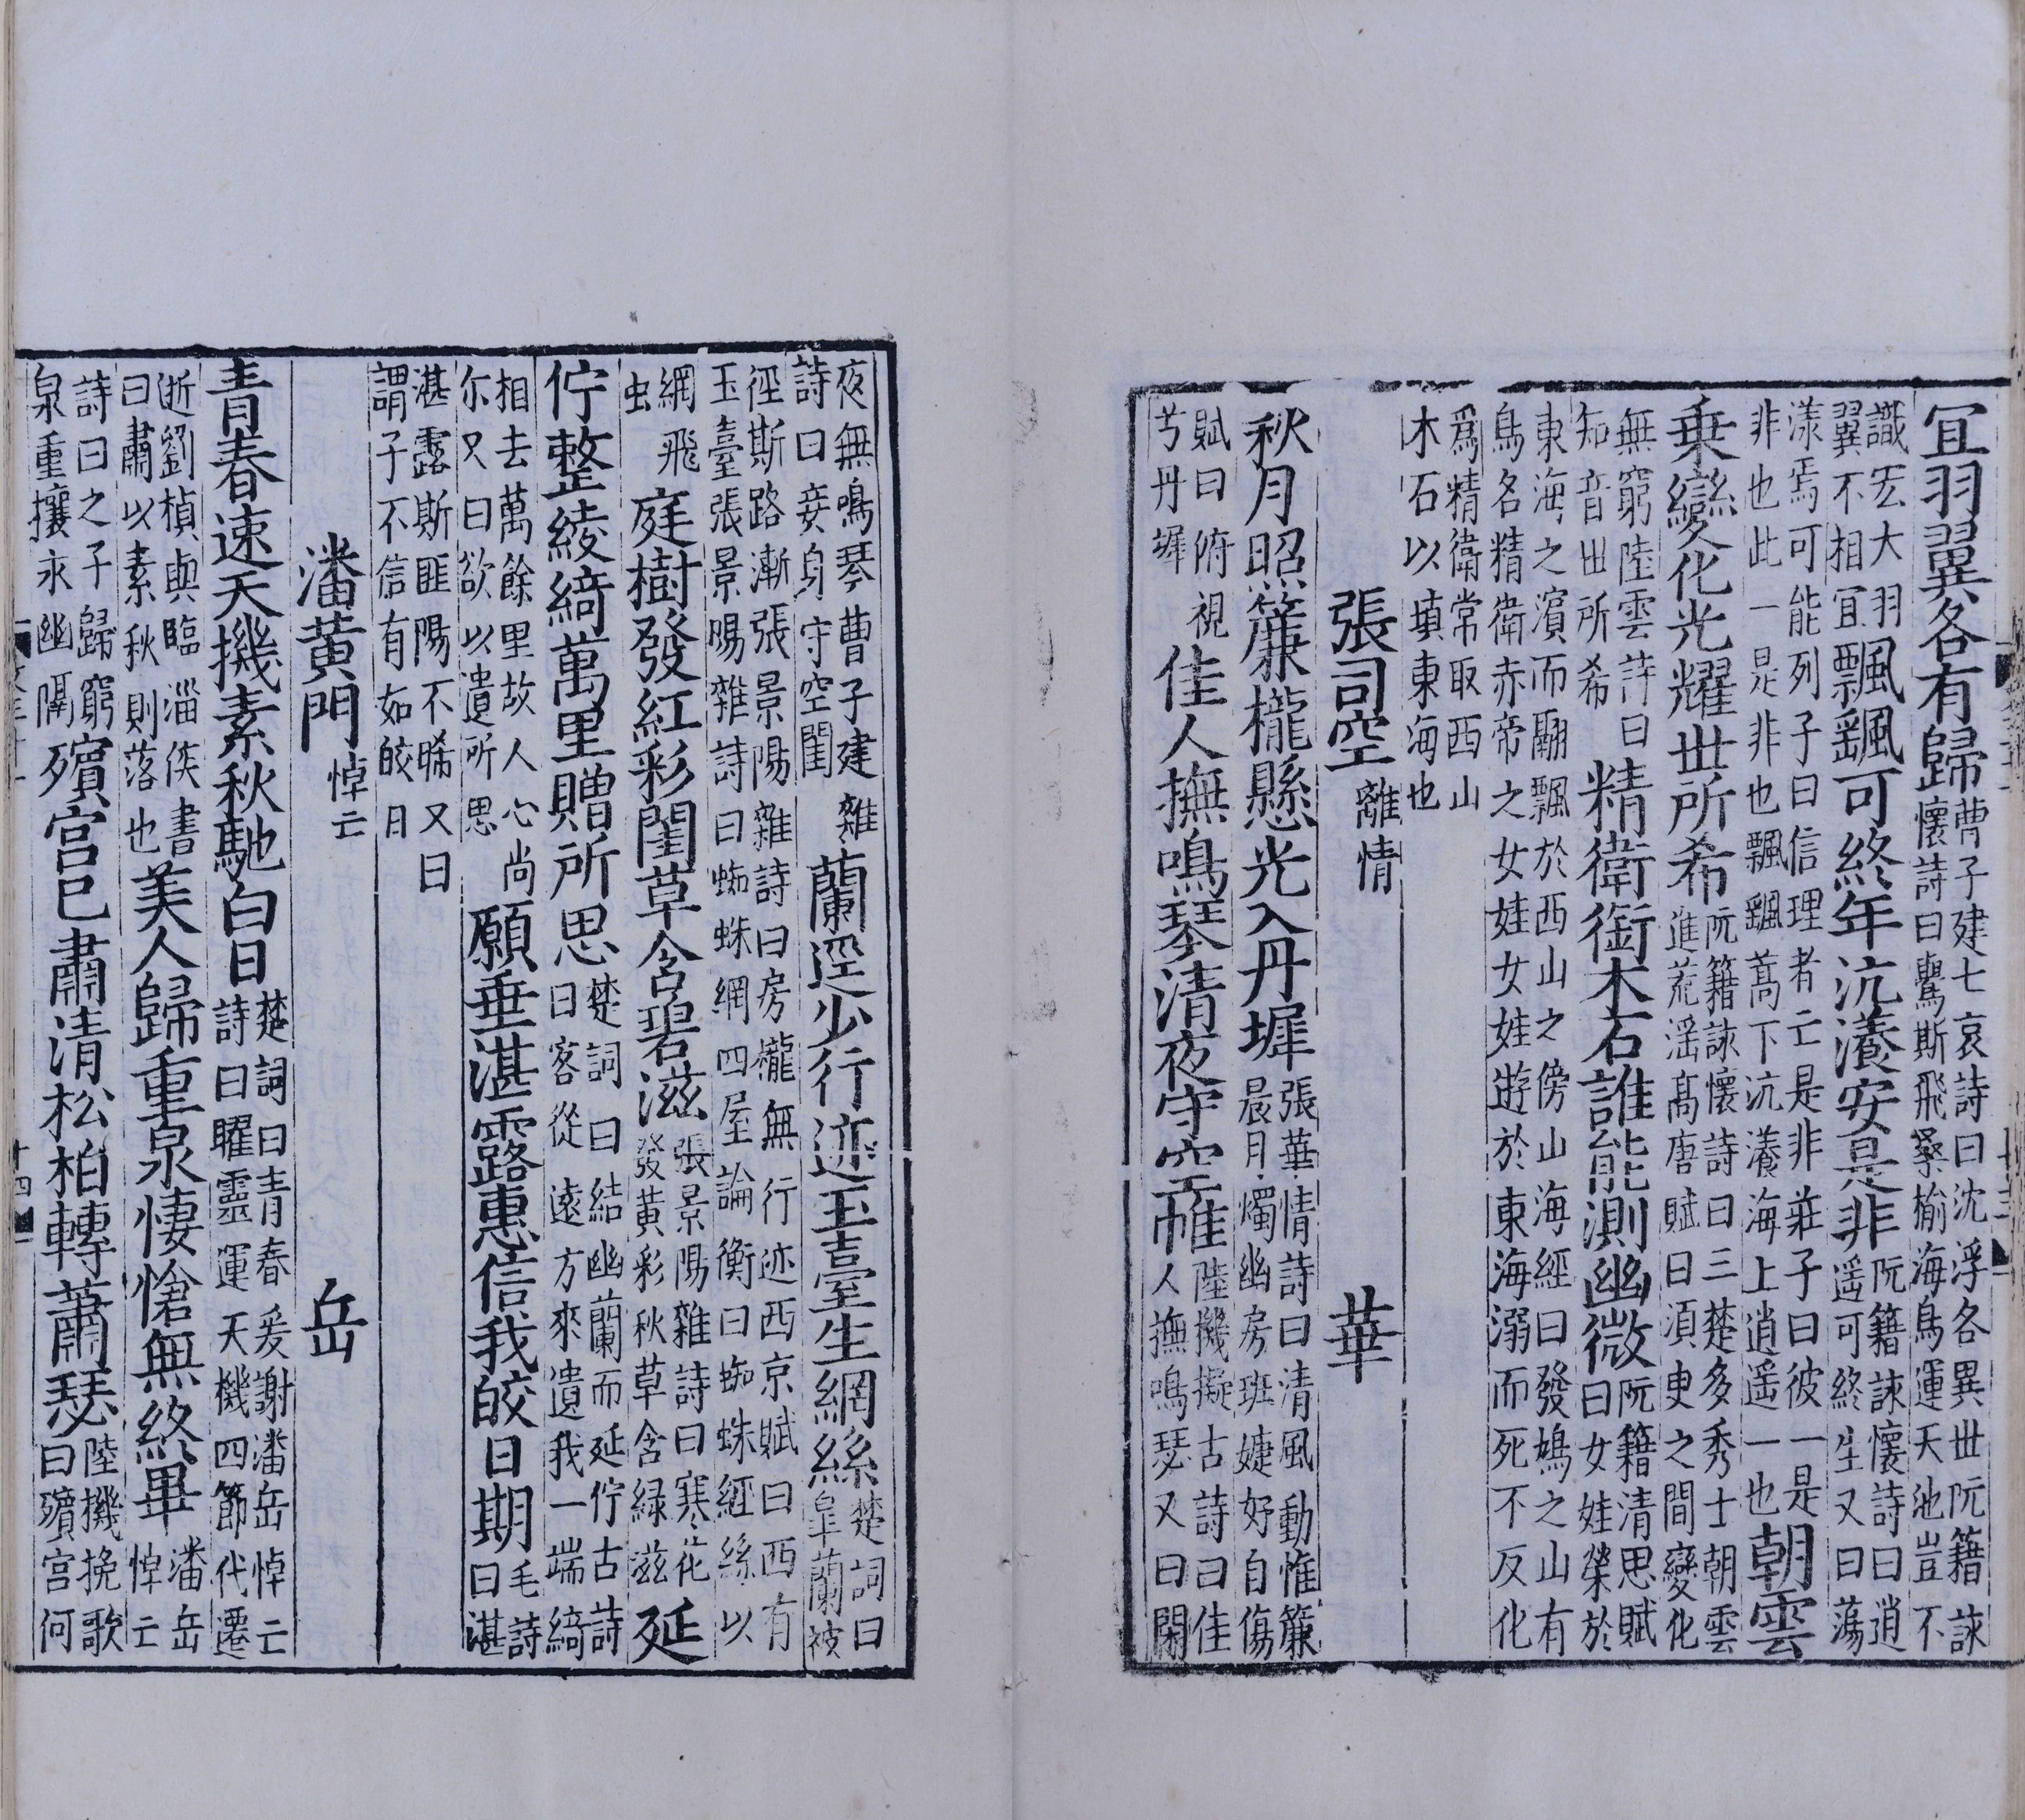 宜羽翼各有歸曹子建七哀詩曰沈浮各異世阮籍詠懷詩曰鸒斯飛桑榆海鳥運天池豈不
識宏大羽翼不相宜飄颻可終年沆瀁安是非阮籍詠懷詩曰逍遥可終生又曰蕩
漾焉可能列子曰信理者亡是非莊子曰彼一是非也此一是非也飄颻髙下沆瀁海上逍遥一也朝雲
乗變化光耀世所希阮籍詠懷詩曰三楚多秀士朝雲進荒滛髙唐賦曰須臾之間變化
無窮陸雲詩曰知音世所希精衛銜木石誰能測幽微阮籍清思賦曰女娃榮於
東海之濵而翩飄於西山之傍山海經曰發鳩之山有鳥名精衛赤帝之女娃女娃遊於東海溺而死不反化
爲精衛常取西山木石以填東海也
張司空離情 華
秋月昭簾櫳懸光入丹墀張華情詩曰清風動惟簾晨月燭幽房班婕妤自傷
賦曰俯視兮丹墀佳人撫鳴琴清夜守空帷陸機擬古詩曰佳人撫鳴瑟又曰閑
夜無鳴琴曹子建雜詩曰妾身守空閨蘭逕少行迹玉臺生網絲楚詞曰皐蘭被
徑斯路漸張景陽雜詩曰房櫳無行迹西京賦曰西有玉臺張景陽雜詩曰蜘蛛網四屋論衡曰蜘蛛經絲以
網飛虫庭樹發紅彩閨草含碧滋張景陽雜詩曰寒花發黃彩秋草含緑滋延
佇整綾綺萬里贈所思楚詞曰結幽蘭而延佇古詩曰客從遠方來遺我一端綺
相去萬餘里故人心尚尔又曰欲以遺所思願垂湛露惠信我皎日期毛詩曰湛
湛露斯匪陽不晞又曰謂子不信有如皎日
潘黃門悼亡 岳
青春速天機素秋馳白日楚詞曰青春爰謝潘岳悼亡詩曰曜靈運天機四節代遷
逝劉楨與臨淄侯書曰肅以素秋則落也美人歸重泉悽愴無終畢潘岳悼亡
詩曰之子歸窮泉重攘永幽隔殯宫已肅清松柏轉蕭瑟陸機挽歌曰殯宫何
十四